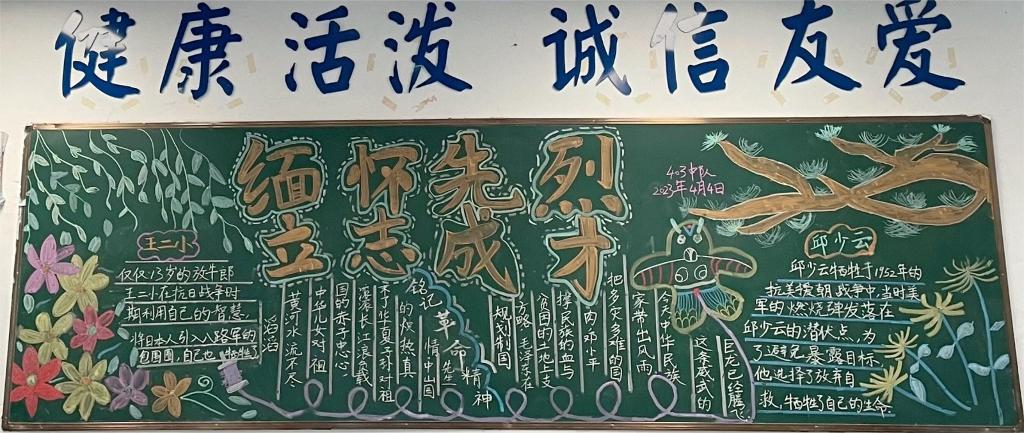 健康活泼 诚信友爱
缅怀先烈
立志成才
403中队
2023年4月4日
王二小
仅仅13岁的放牛郎
王二小在抗日战争时
期利用自己的智慧
将日本人引入八路军的
包围圈,自己也牺牲
滔滔
黄河水流不尽
中华儿女对祖
国的赤子忠心
滚滚长江浪负载
不了华夏子孙对祖
的炽热真
情
铭记革命精神
中山先生
规划制国
方略 毛泽东在
贫困的土地上支
撑民族的血与
肉 邓小平
把多灾多难的国
家带出风雨
今天中华民族
这条威武的
巨龙已经腾飞
邱少云
邱少云牺牲于1952年的
抗美援朝战争中,当时美
军的燃烧弹发落在
邱少云的潜伏点,为
了避免暴露目标,
他选择了放弃自
救,牺牲了自己的生命